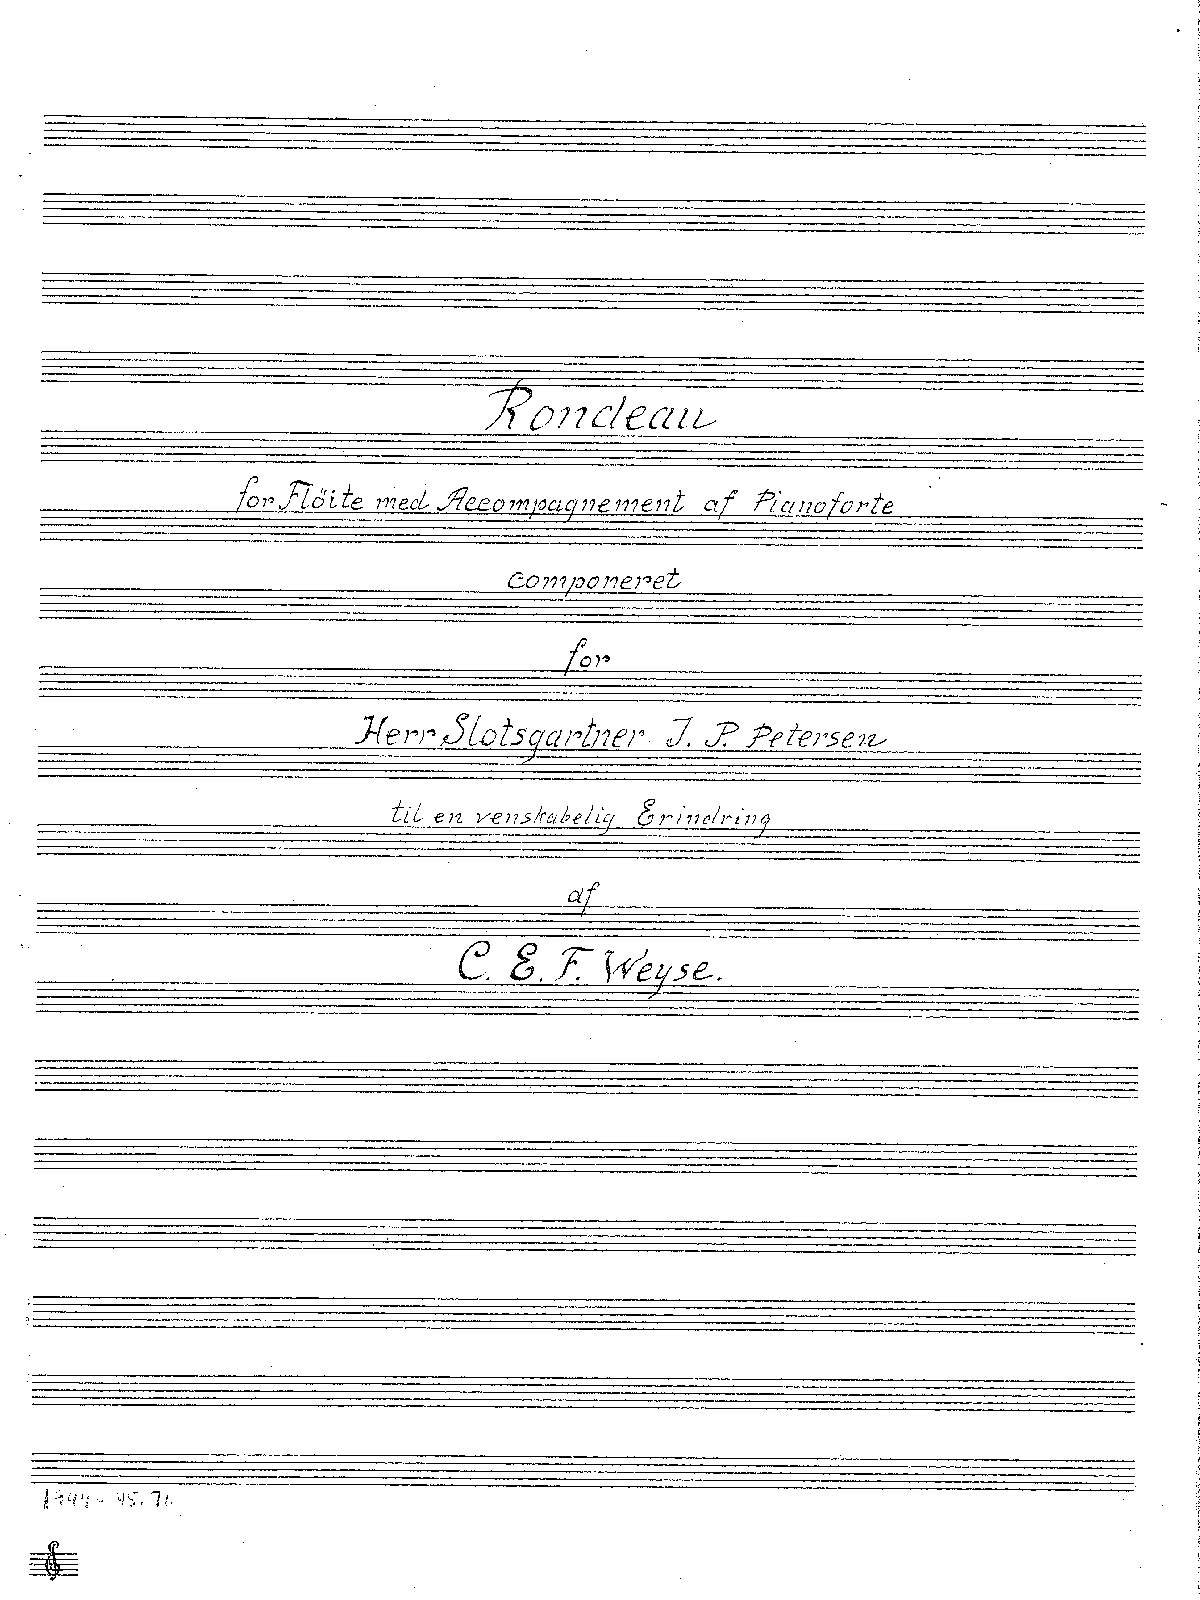 Rondeau
for Flöite med Accompagnement af Pianoforte
componeret
for
Herr Slotsgartner J. P. Petersen
til en venskabelig Erindring
af
C. E. F. Weyse.